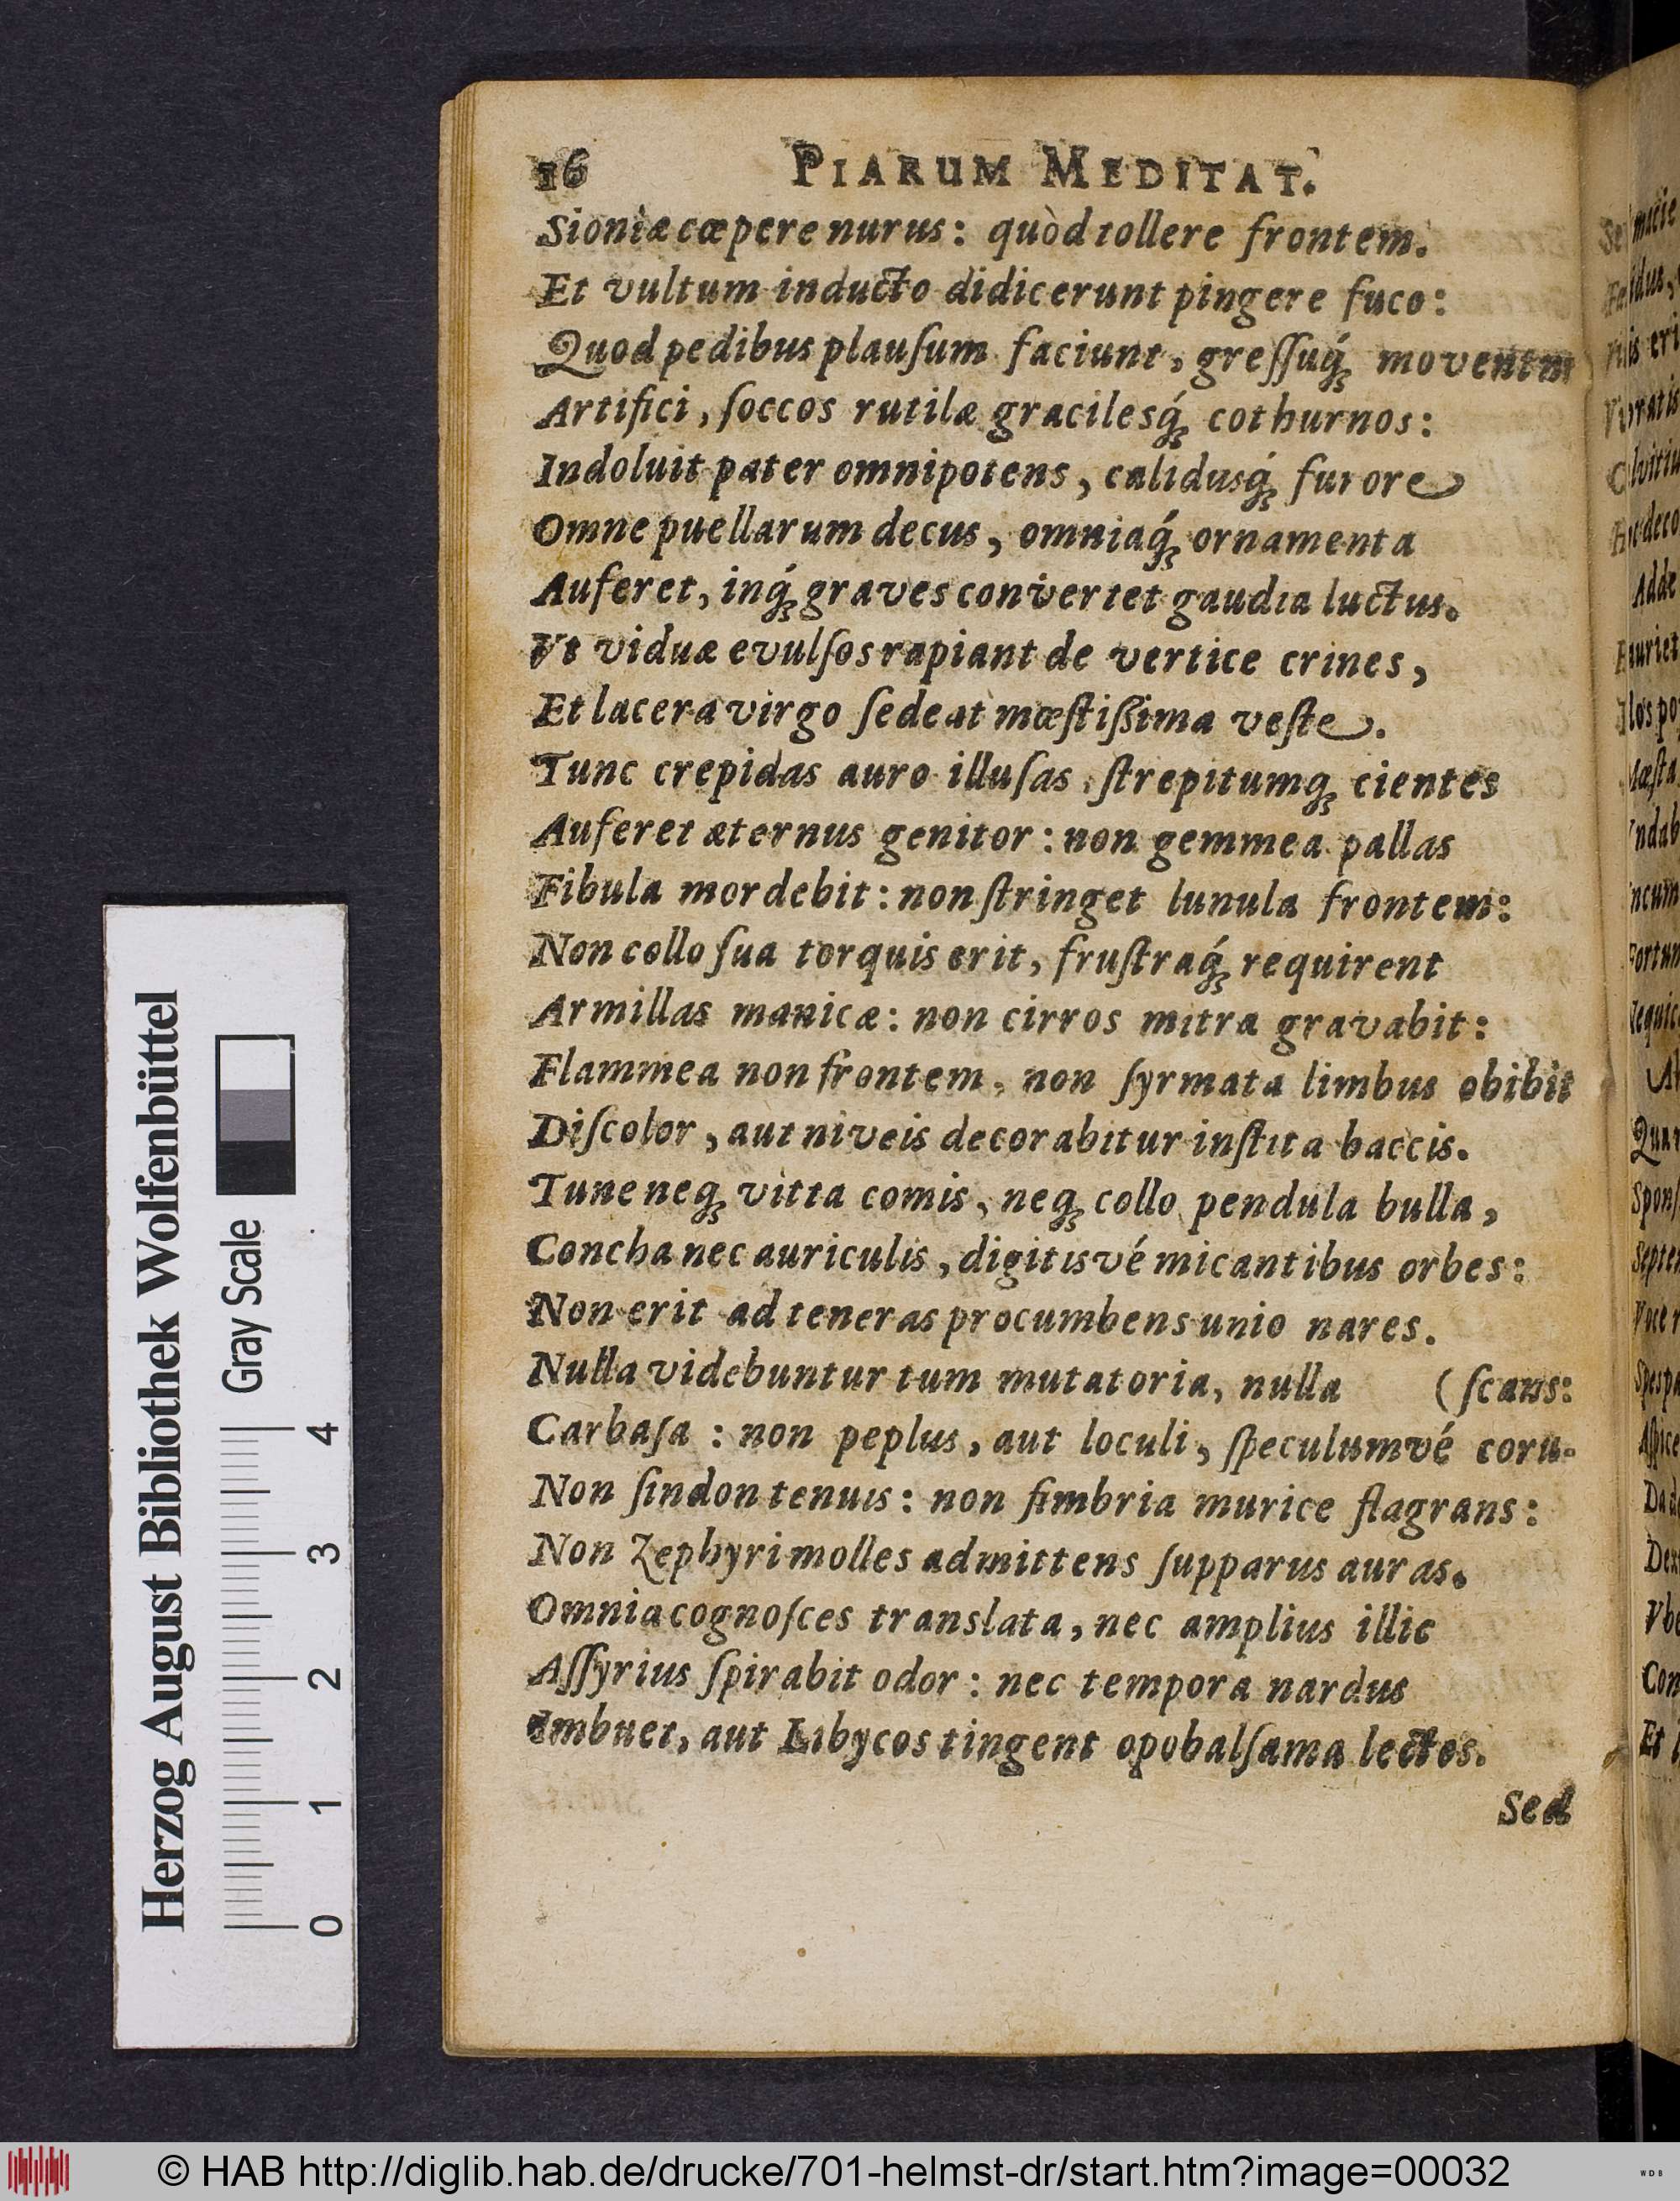 16 PIARUM MEDITAT.
Sioniæ cœpere nurus: quòd tollere frontem.
Et vultum inducto didicerunt pingere fuco:
Quod pedibus plauſum faciunt, greſſuq́ꝫ moventur
Artifici, ſoccos rutilæ gracilesq́ꝫ cothurnos:
Indoluit pater omnipotens, calidusq́ꝫ furore
Omne puellarum decus, omniaq́ꝫ ornamenta
Auferet, inq́ꝫ graves convertet gaudia luctus.
Vt viduæ evulſos rapiant de vertice crines,
Et lacera virgo ſedeat mœſtiſsima veſte.
Tunc crepidas auro illuſas, ſtrepitumqꝫ cientes
Auferet æternus genitor: non gemmea pallas
Fibula mordebit: non ſtringet lunula frontem:
Non collo ſua torquis erit, fruſtraq́ꝫ requirent
Armillas manicæ: non cirros mitra gravabit:
Flammea non frontem, non ſyrmata limbus obibit
Diſcolor, aut niveis decorabitur inſtita baccis.
Tunc neqꝫ vitta comis, neqꝫ collo pendula bulla,
Concha nec auriculis, digitisvé micantibus orbes:
Non erit ad teneras procumbens unio nares.
Nulla videbuntur tum mutatoria, nulla (ſcans:
Carbaſa: non peplus, aut loculi, ſpeculumvé coru-
Non ſindon tenuis: non fimbria murice flagrans:
Non Zephyri molles admittens ſupparus auras.
Omnia cognoſces translata, nec amplius illic
Aſſyrius ſpirabit odor: nec tempora nardus
Imbuet, aut Libycos tingent opobalſama lectos.
Sed
Herzog August Bibliothek Wolfenbüttel
Gray Scale
0 1 2 3 4
© HAB http://diglib.hab.de/drucke/701-helmst-dr/start.htm?image=00032
WDB